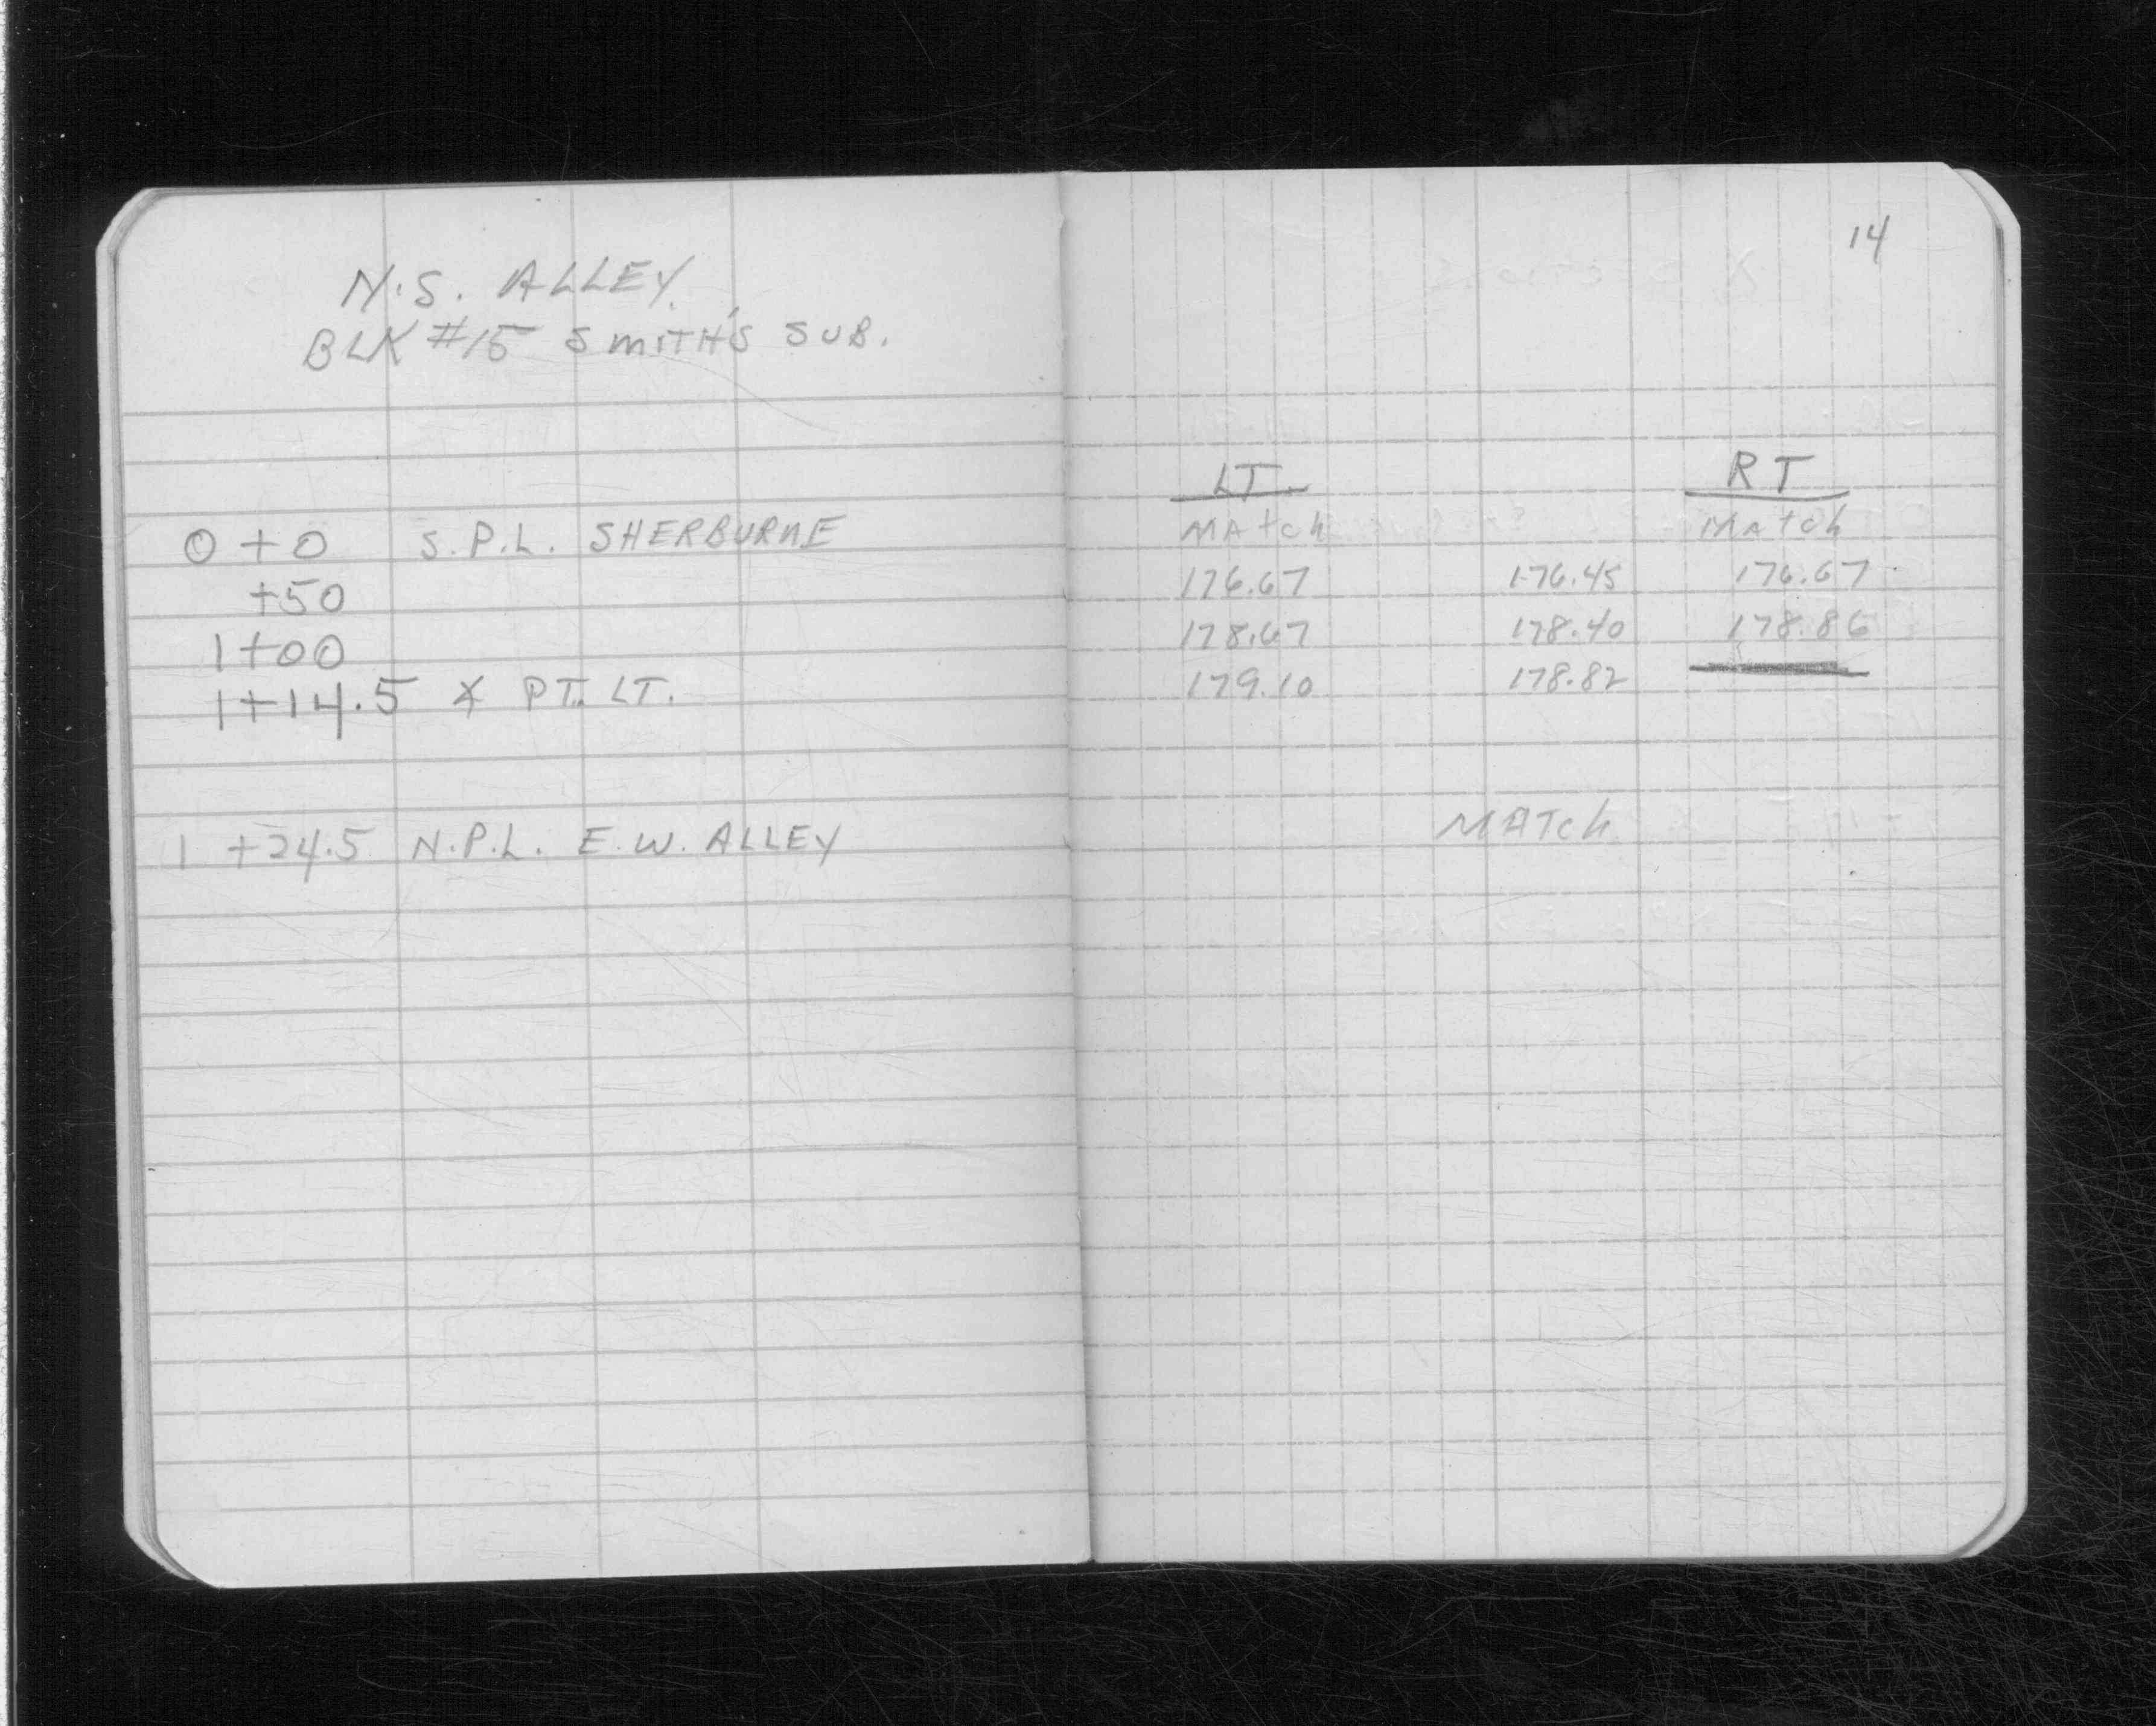 N.S. ALLEY
BLK #15 SMITH'S SUB.
0+0 S.P.L. SHERBURNE
+50
1+00
1+14.5 ∡ PT. LT.
1+24.5 N.P.L. E.W. ALLEY
14
LT RT
MAtch MAtch
176.67 176.45 176.67
178.67 178.40 178.86
179.10 178.82
MATCh